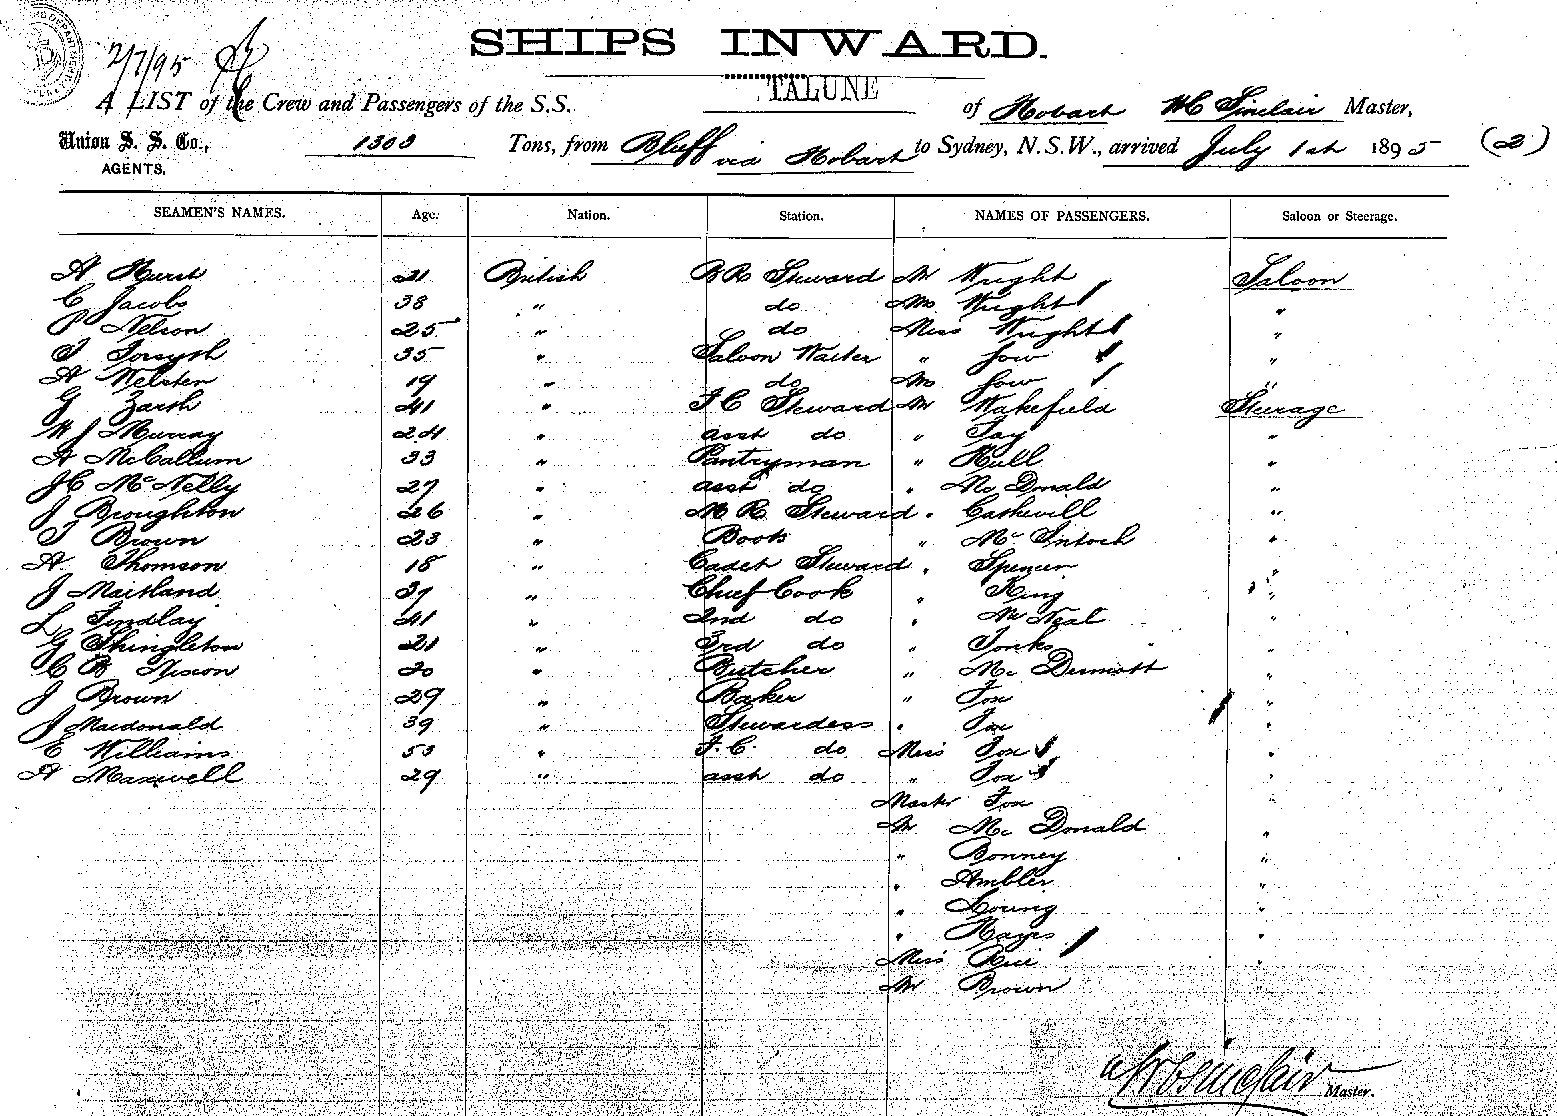 SHIPS INWARD.
2/7/95
TALUNE
A LIST of the Crew and Passengers of the S.S. of Hobart W C Sinclair Master,
Union S. S. Co., 1303 Tons, from Bluff via Hobart to Sydney, N.S.W., arrived July 1st 1895 (2)
AGENTS.
SEAMEN'S NAMES. Age. Nation. Station. NAMES OF PASSENGERS. Saloon or Steerage.
A Hurst 21 British B R Steward Mr Wright Saloon
C Jacobs 38 " do Mrs Wright "
P Nelson 25 " do Miss Wright "
T Forsyth 35 " Saloon Waiter " Low "
A Webster 19 " do Mrs Low "
G Zarth 41 " F C Steward Mr Wakefield Steerage
W J Murray 24 " asst do " Tay "
A McCallum 33 " Pantryman " Hull "
J C McNelly 27 " asst do " McDonald "
J Broughton 26 " M R Steward "
T Brown 23 " Book " McIntosh "
A Thomson 18 " Cadet Steward " Spencer "
J Maitland 37 " Chief Cook " King "
L Findlay 41 " 2nd do " McNeal "
G Shingleton 21 " 3rd do " Jonks "
C B Nixon 20 " Butcher " McDermott "
J Brown 29 " Baker " Fox "
J Macdonald 39 " Stewardess " Fox "
E Williams 53 " F.C. do Miss Fox "
A Maxwell 29 " asst do " Fox "
Master Fox "
Mr McDonald "
" Bonney "
" Ambler "
" Young "
" Hayes "
Miss Rice "
Mr Brown
W C Sinclair Master.